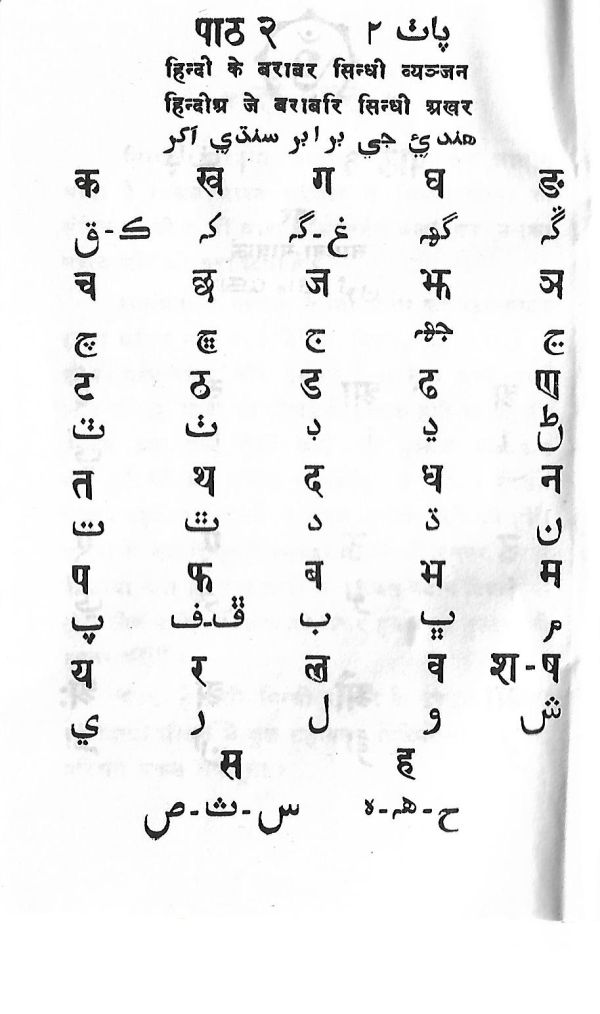 पाठ २ پاٺ ٢
हिन्दी के बराबर सिन्धी व्यञ्जन
हिन्दीअ जे बराबरि सिन्धी अखर
هنديءَ جي برابر سنڌي اکر
क ख ग घ ङ
ڪ-ق که غ-گہ گھہ ڱہ
च छ ज झ ञ
چ ڇ ج جھہ ڃ
ट ठ ड ढ ण
ٽ ٺ ڊ ڍ ڻ
त थ द ध न
ت ٿ د ڌ ن
प फ ब भ म
پ ڦ-ف ب ڀ م
य र ल व श-ष
ي ر ل و ش
स ह
س-ث-ص ح-هہ-ه